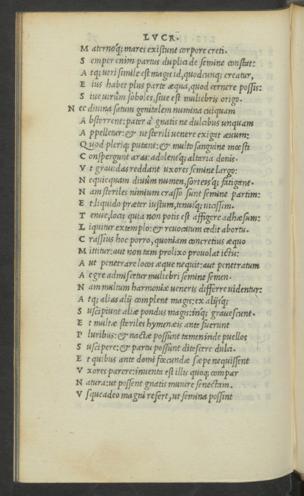 LVCR.
M aternoq; mares existunt corpore creti.
S emper enim partus duplici de semine constat:
A tq; utri simile est magis id, quodcunq; creatur,
E ius habet plus parte æqua, quod cernere possis:
S iue uirûm soboles, siue est muliebris origo.
N ec diuina satum genitalem numina cuiquam
A bsterrent: pater à gnatis ne dulcibus unquam
A ppelletur: & ut sterili uenere exigat æuum:
Q uod pleriq; putant: & multo sanguine mœsti
C onspergunt aras: adolentq; altaria donis:
V t grauidas reddant uxores semine largo:
N equicquam diuûm numen, sortesq; fatigant.
N am steriles nimium crasso sunt semine partim:
E t liquido præter iustum, tenuiq; uicissim.
T enue, locis quia non potis est affigere adhæsum:
L iquitur extemplo: & reuocatum cedit abortu.
C rassius hoc porro, quoniam concretius æquo
M ittitur: aut non tam prolixo prouolat ictu:
A ut penetrare locos æque nequit: aut penetratum
A egre admiscetur muliebri semine semen.
N am multum harmoniæ ueneris differre uidentur:
A tq; alias alij complent magis: ex alijsq;
S uscipiunt aliæ pondus magis: inq; grauescunt.
E t multæ steriles hymenæis ante fuerunt
P luribus: & nactæ possunt tamen inde puellos
S uscipere: & partu possunt ditescere dulci.
E t quibus ante domi fœcundæ sæpe nequissent
V xores parere: inuenta est illis quoq; compar
N atura: ut possent gnatis munire senectam.
V sque adeo magni refert, ut semina possint